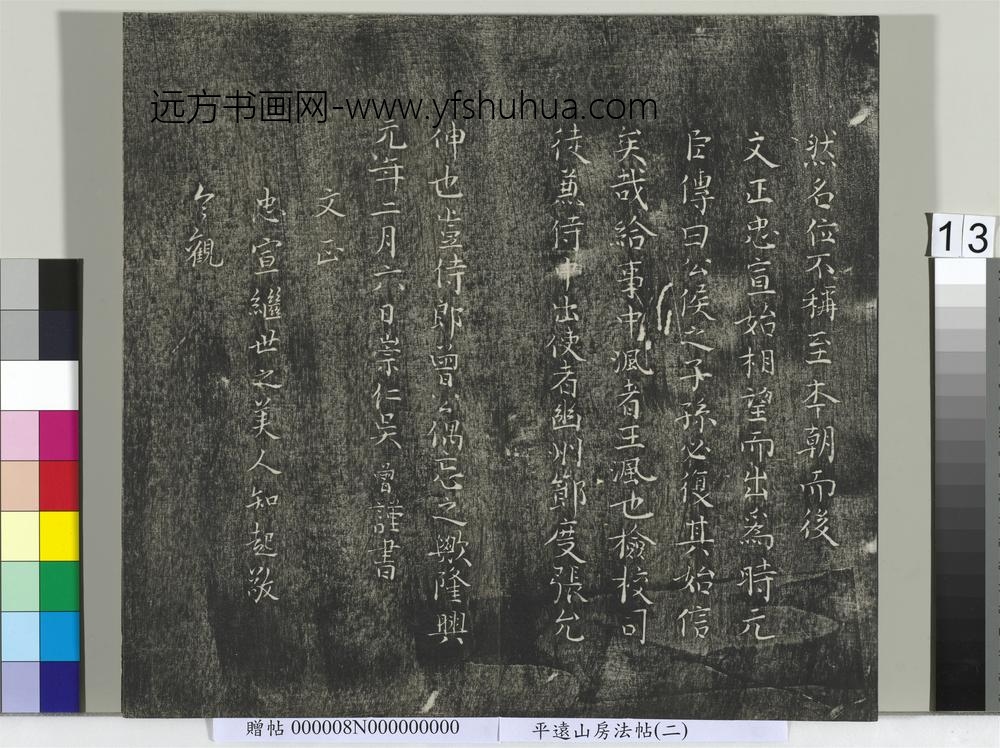 远方书画网-www.yfshuhua.com
然名位不稱至本朝而後
文正忠宣始相望而出為時元
臣傳曰公侯之子孫必復其始信
矣哉給事中渢者王渢也檢校司
徒蒹侍中出使者幽州節度張允
伸也豈侍郎曾公偶忘之歟隆興
元年二月六日崇仁吴曾謹書
文正
忠宣繼世之美人知起敬
今觀
13
贈帖 000008N000000000
平遠山房法帖(二)